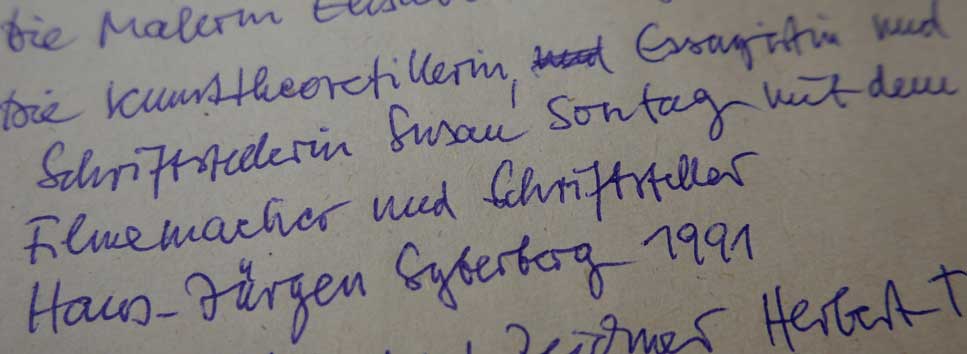 Die Malerin
Die Kunsttheoretikerin, Essayistin und
Schriftstellerin Susan Sontag mit dem
Filmemacher und Schriftsteller
Hans-Jürgen Syberberg 1991
Zeichner Herbert